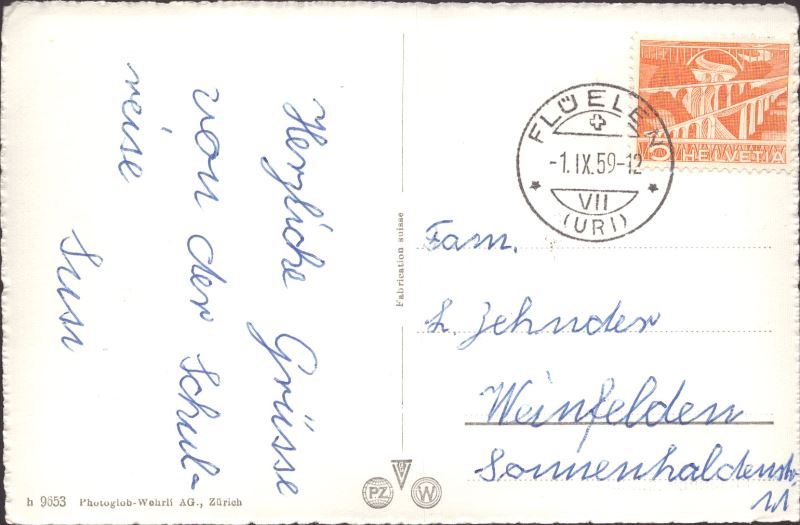 Herzliche Grüsse
von der Schul-
reise
Susi
Fabrication suisse
h 9653 Photoglob-Wehrli AG., Zürich
PZ W
5 HELVETIA
FLÜELEN
-1.IX.59-12
VII
(URI)
Fam.
H. Zehnder
Weinfelden
Sonnenhaldenstr.
11